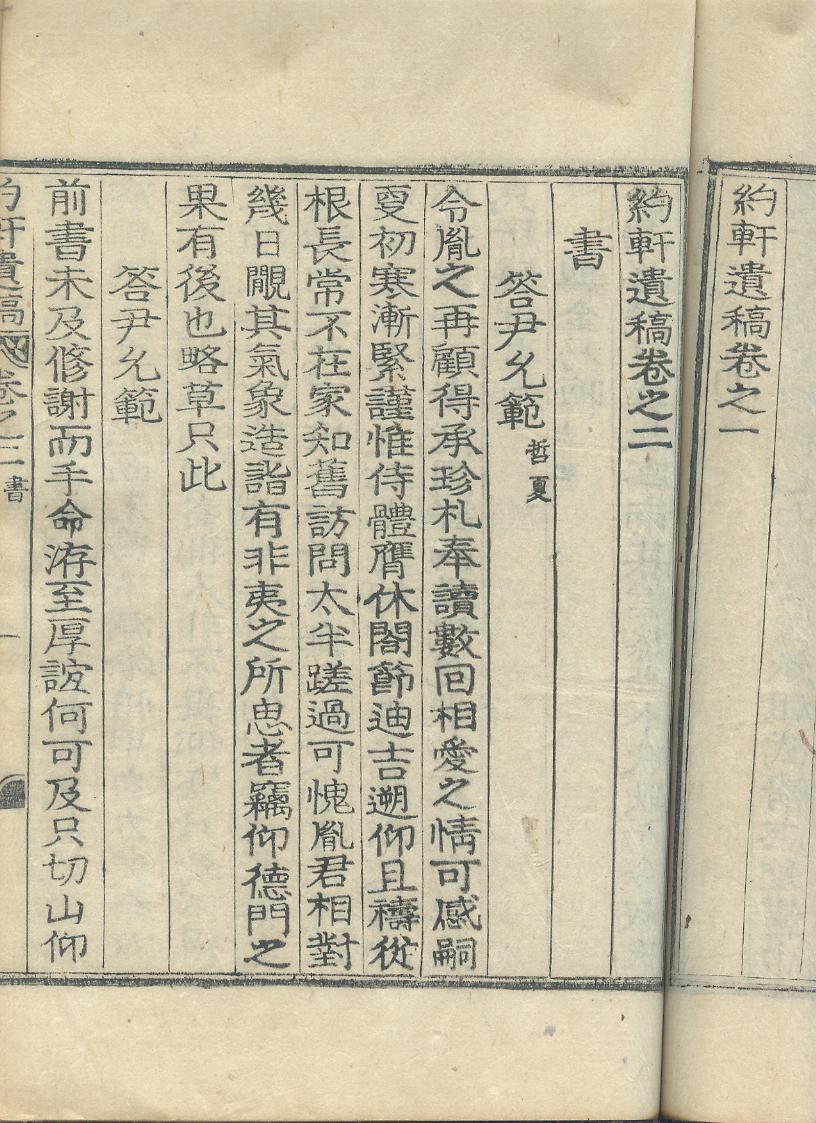 約軒遺稿卷之一
約軒遺稿卷之二
書
答尹允範 哲夏
令胤之再顧得承珍札奉讀數回相愛之情可感嗣
更初寒漸緊謹惟侍體膺休閤節迪吉遡仰且禱從
根長常不在家知舊訪問太半蹉過可愧胤君相對
幾日覵其氣象造詣有非夷之所思者竊仰德門之
果有後也略草只此
答尹允範
前書未及修謝而手命洊至厚誼何可及只切山仰
約軒遺稿 卷之二 書